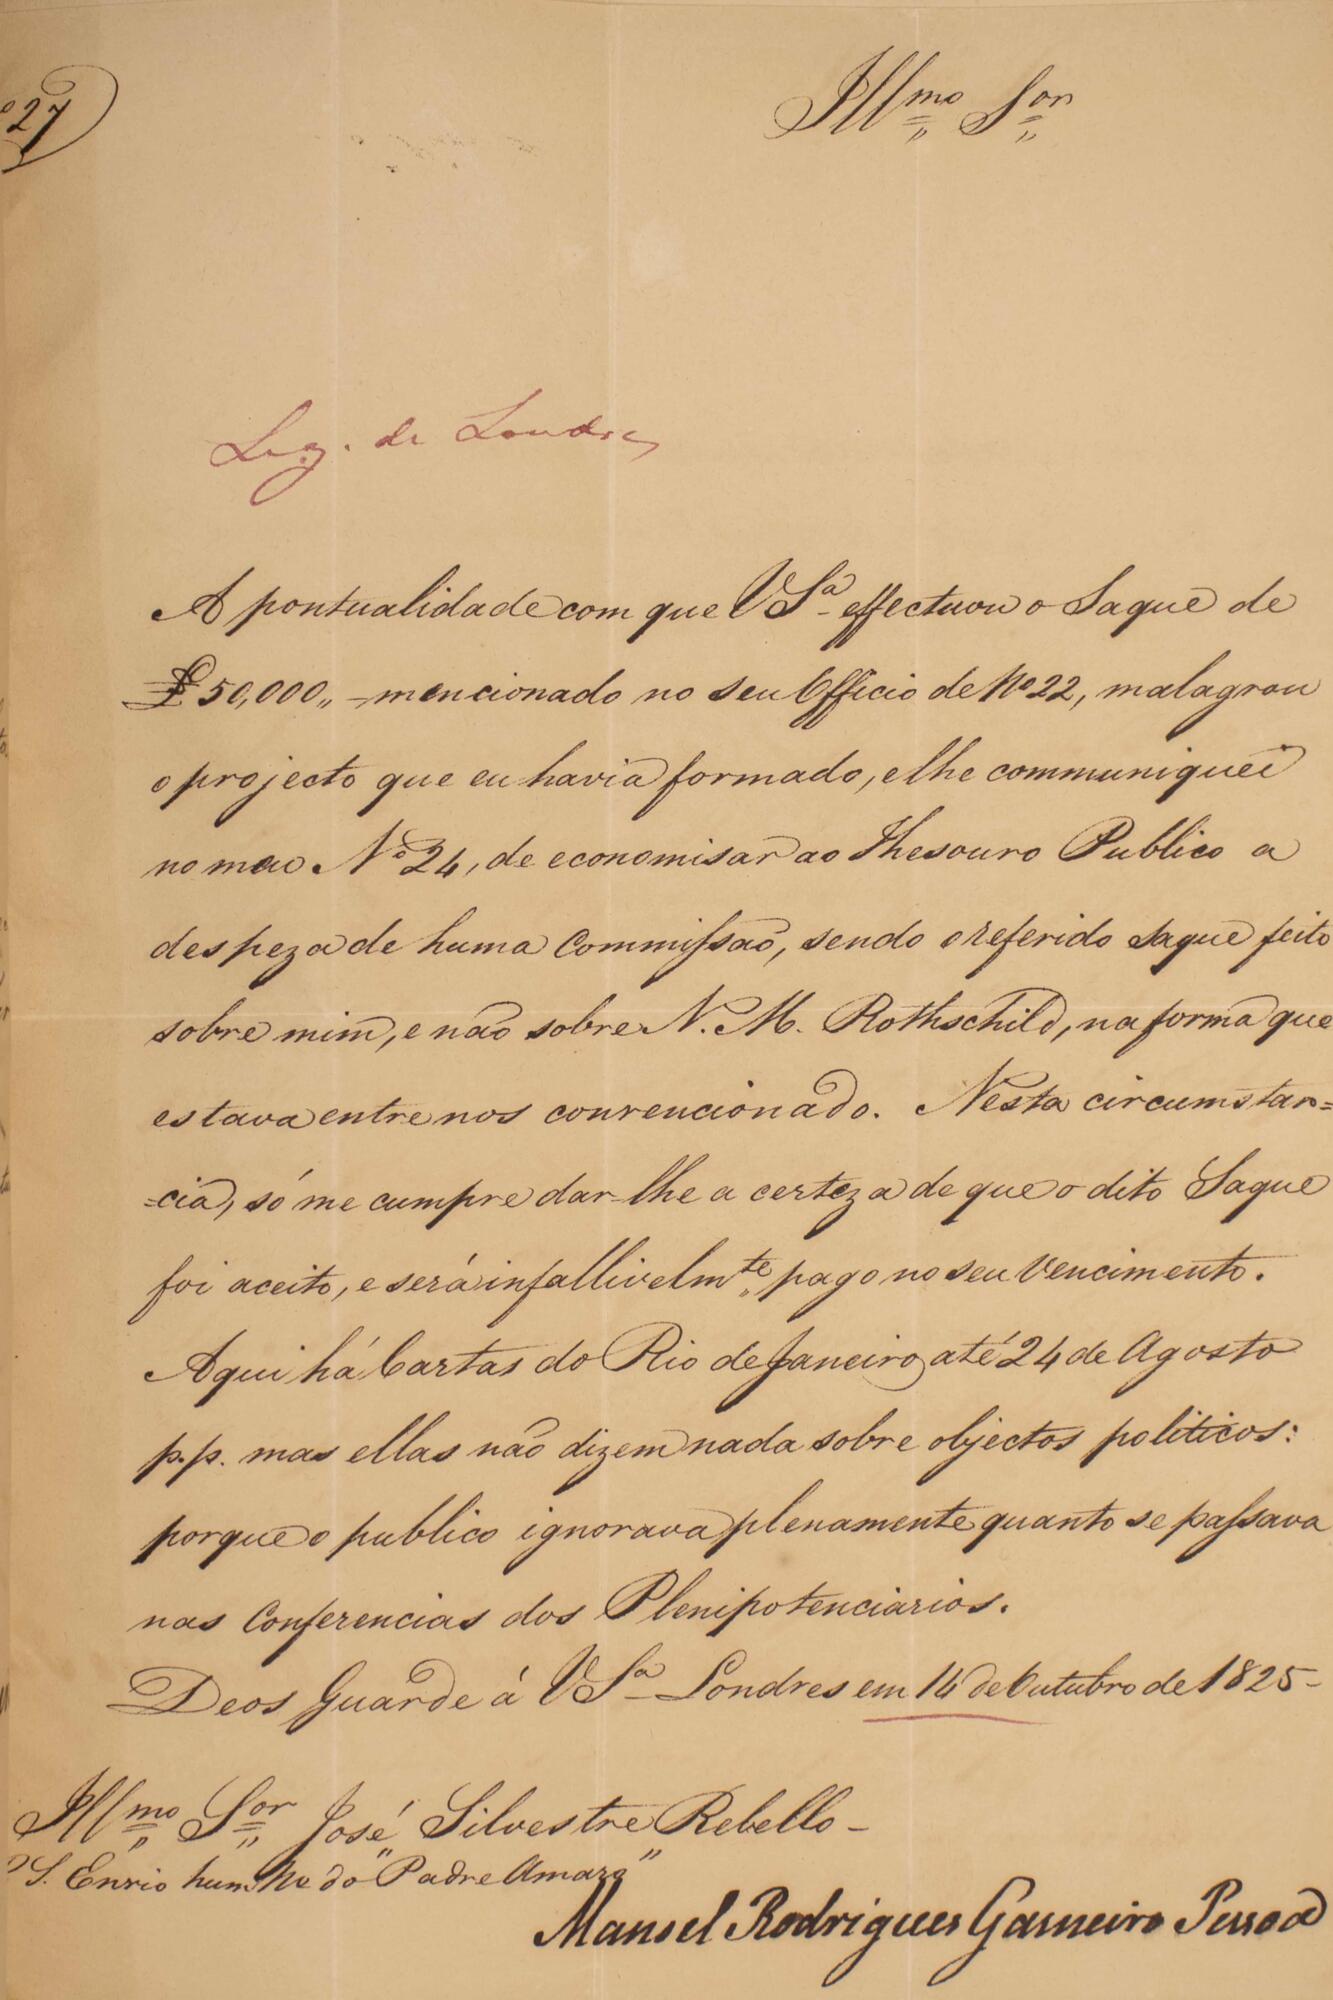 Nº 27
Illmo Sor
Leg. de Londres
A pontualidade com que VSa effectuou o Saque de
£ 50,000,, mencionado no seu Officio de Nº 22, malagrou
o projecto que eu havia formado, e lhe communiquei
no meu Nº 24, de economisar ao Thesouro Publico a
despeza de huma Commissão, sendo o referido Saque feito
sobre mim, e não sobre N. M. Rothschild, na forma que
estava entre nos convencionado. Nesta circumstan=
=cia, só me cumpre dar-lhe a certeza de que o dito Saque
foi aceito, e será infallivelmte pago no seu Vencimento.
Aqui há Cartas do Rio de Janeiro até 24 de Agosto
p.p. mas ellas não dizem nada sobre objectos politicos:
porque o publico ignorava plenamente quanto se passava
nas Conferencias dos Plenipotenciarios.
Deos Guarde á VSa Londres em 14 de Outubro de 1825-
Illmo Sor José Silvestre Rebello-
P.S. Envio hum Nº do "Padre Amaro"
Manoel Rodrigues Gameiro Pessoa